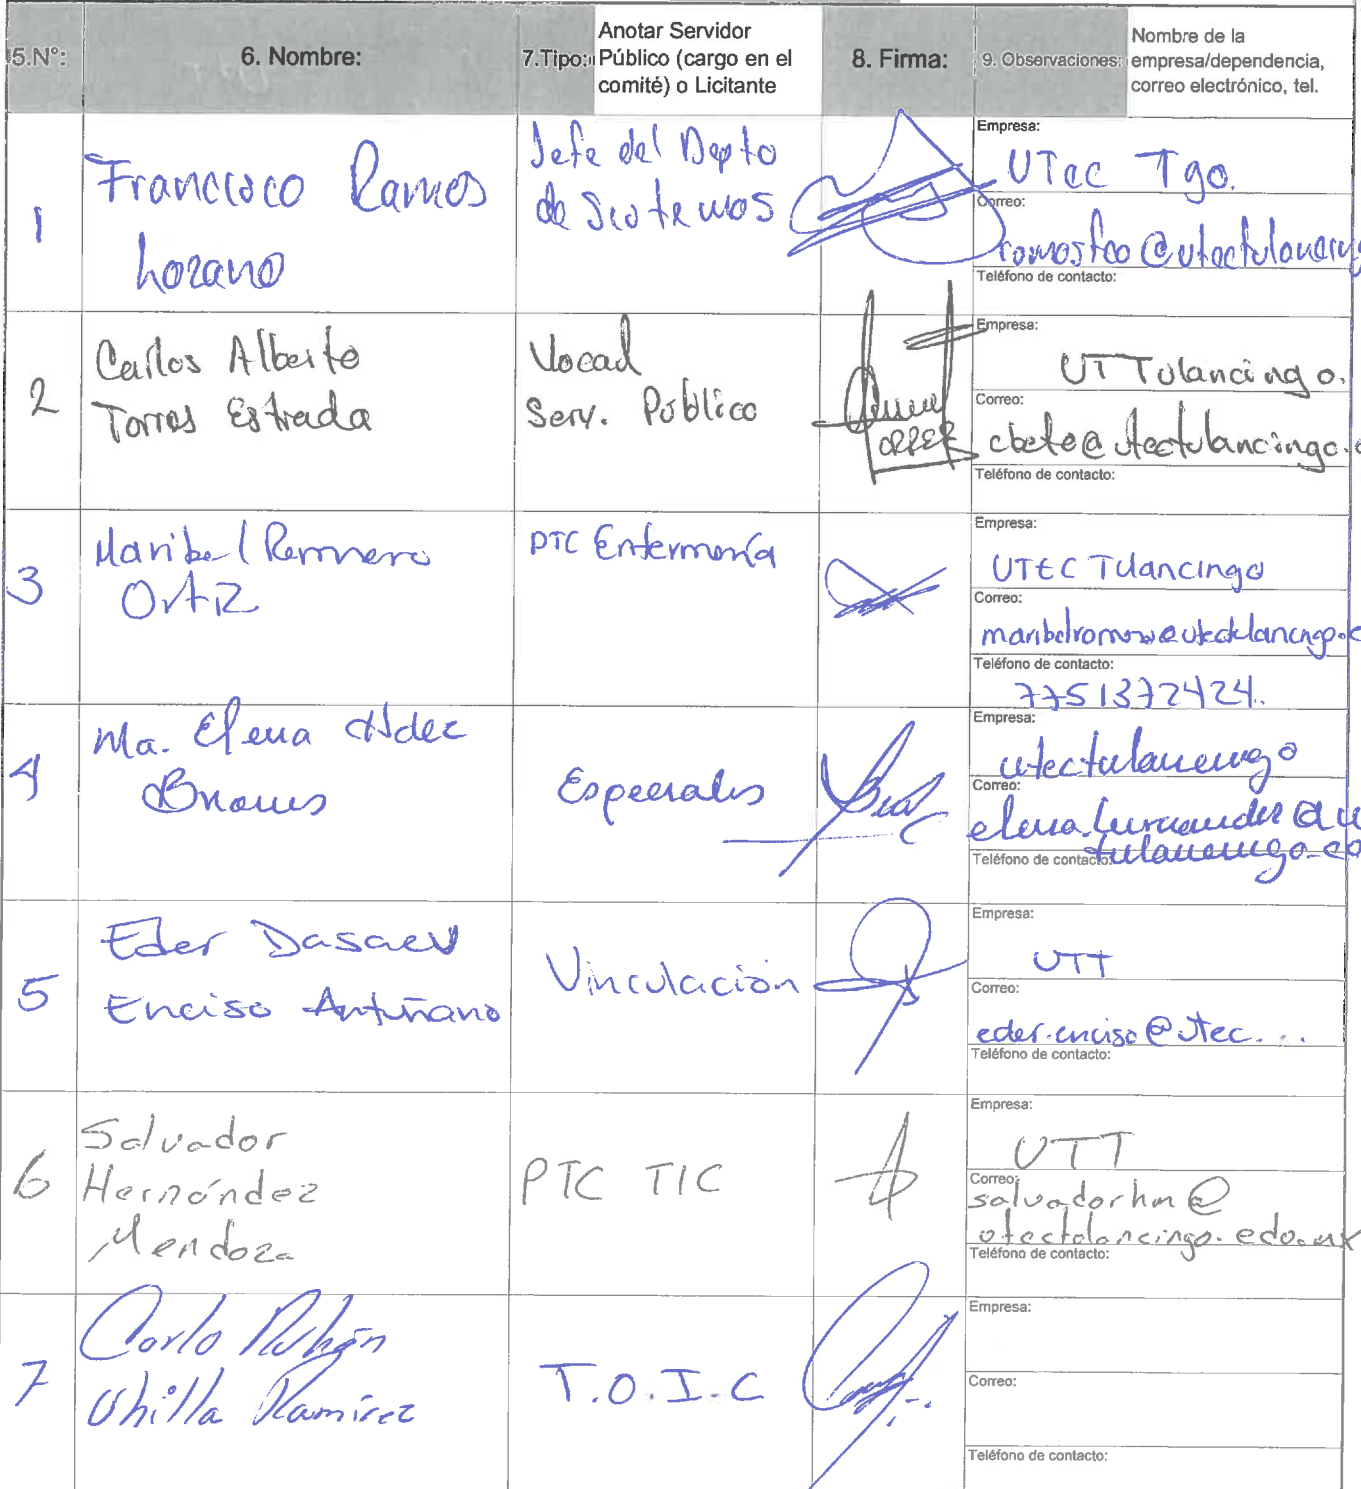 5.N°:
6. Nombre:
7.Tipo:
Anotar Servidor
Público (cargo en el
comité) o Licitante
8. Firma:
9. Observaciones:
Nombre de la
empresa/dependencia,
correo electrónico, tel.
1
Francisco Ramos
Lozano
Jefe del Depto
de Sistemas
Empresa:
UTec Tgo.
Correo:
Teléfono de contacto:
2
Carlos Alberto
Torres Estrada
Vocal
Serv. Público
Empresa:
UT Tulancingo.
Correo:
Teléfono de contacto:
3
Maribel Romero
Ortiz
PTC Enfermería
Empresa:
UTEC Tulancingo
Correo:
Teléfono de contacto:
7751372424.
4
Ma. Elena Hdez
Briones
Especiales
Empresa:
utectulancingo
Correo:
Teléfono de contacto:
5
Eder Dasaev
Enciso Antuñano
Vinculación
Empresa:
UTT
Correo:
eder.enciso@utec...
Teléfono de contacto:
6
Salvador
Hernández
Mendoza
PTC TIC
Empresa:
UTT
Correo:
salvadorhm@
utectulancingo.edu.mx
Teléfono de contacto:
7
Carlo Rubén
Ubilla Ramírez
T.O.I.C
Empresa:
Correo:
Teléfono de contacto: